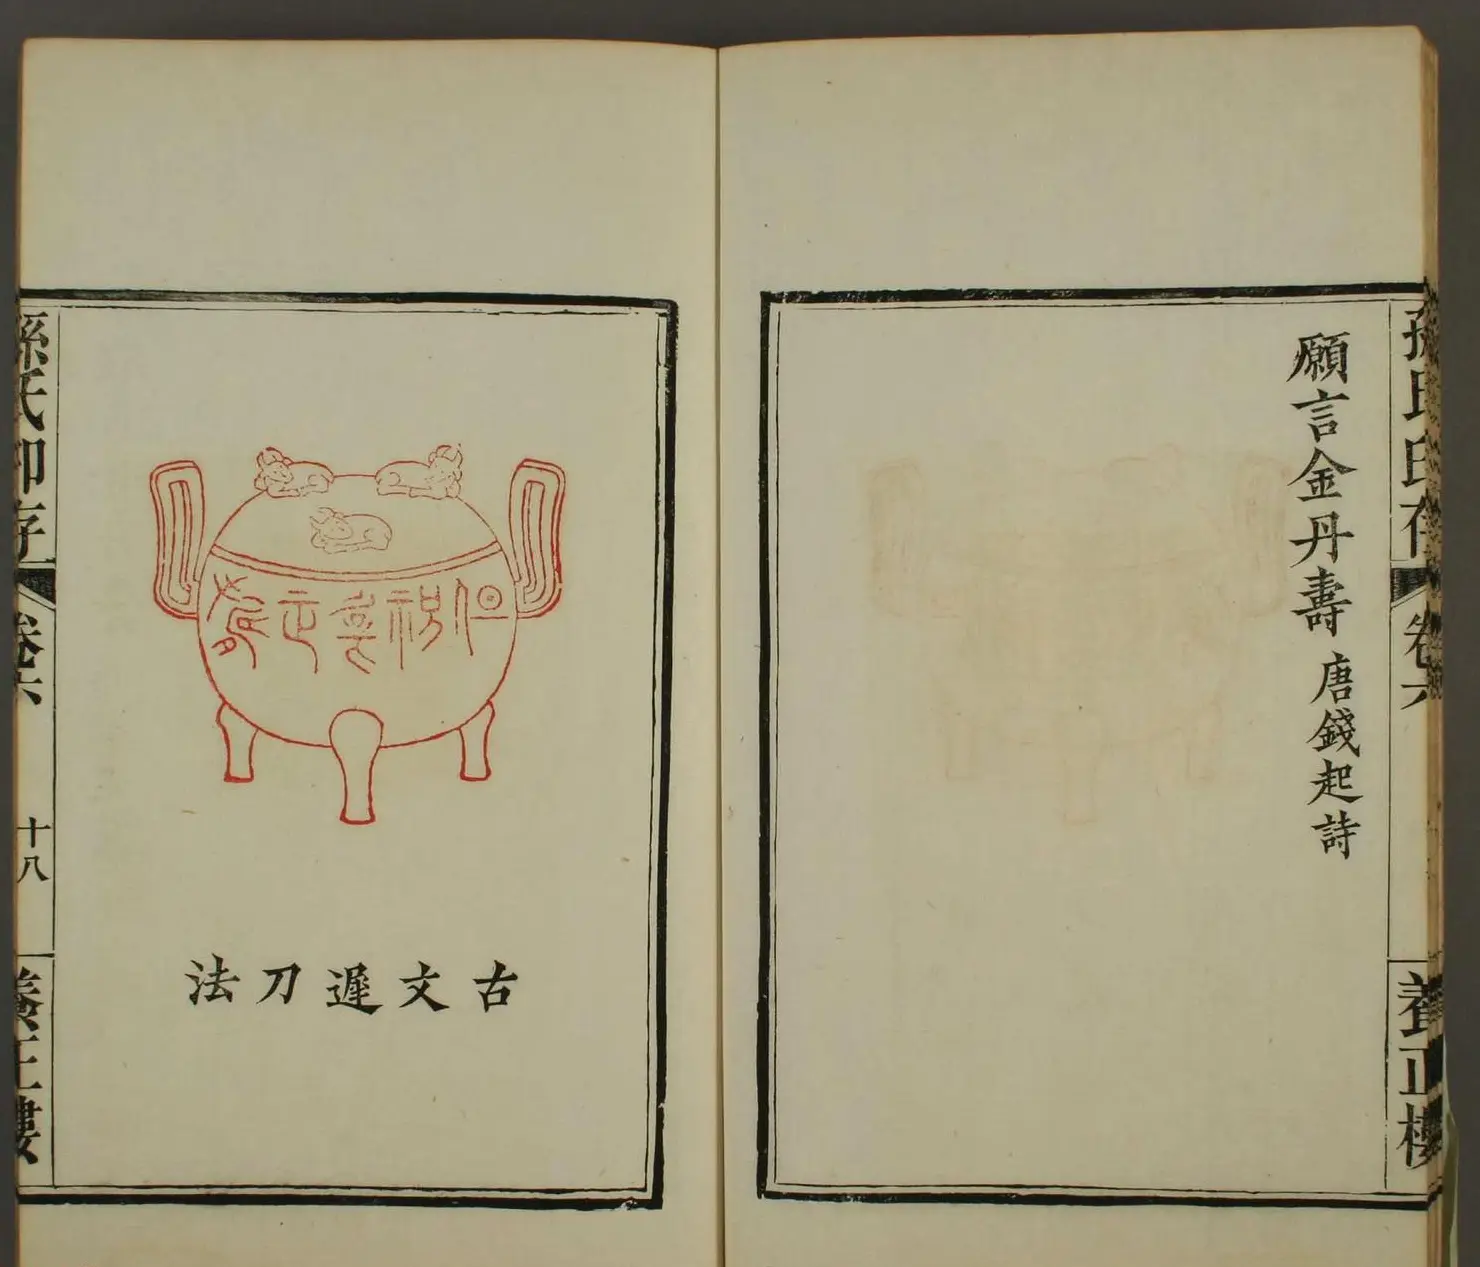 孫氏印存
卷六
養正樓
願言金丹壽 唐錢起詩
古文遲刀法
孫氏印存
卷六
十八
養正樓